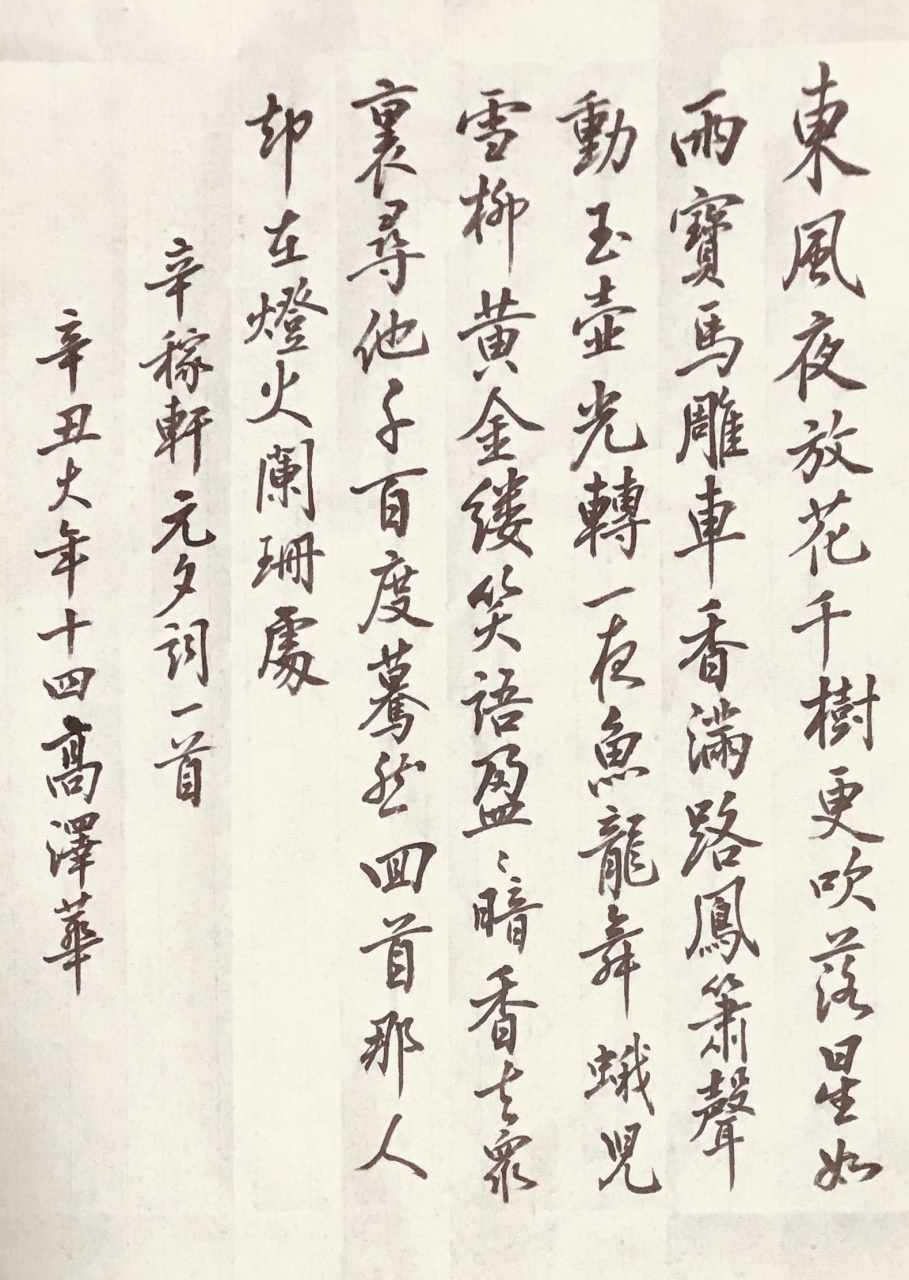 東風夜放花千樹更吹落星如
雨寶馬雕車香滿路鳳簫聲
動玉壺光轉一夜魚龍舞蛾兒
雪柳黃金縷笑語盈〻暗香去眾
裏尋他千百度驀然回首那人
却在燈火闌珊處
辛稼軒元夕詞一首
辛丑大年十四高澤華